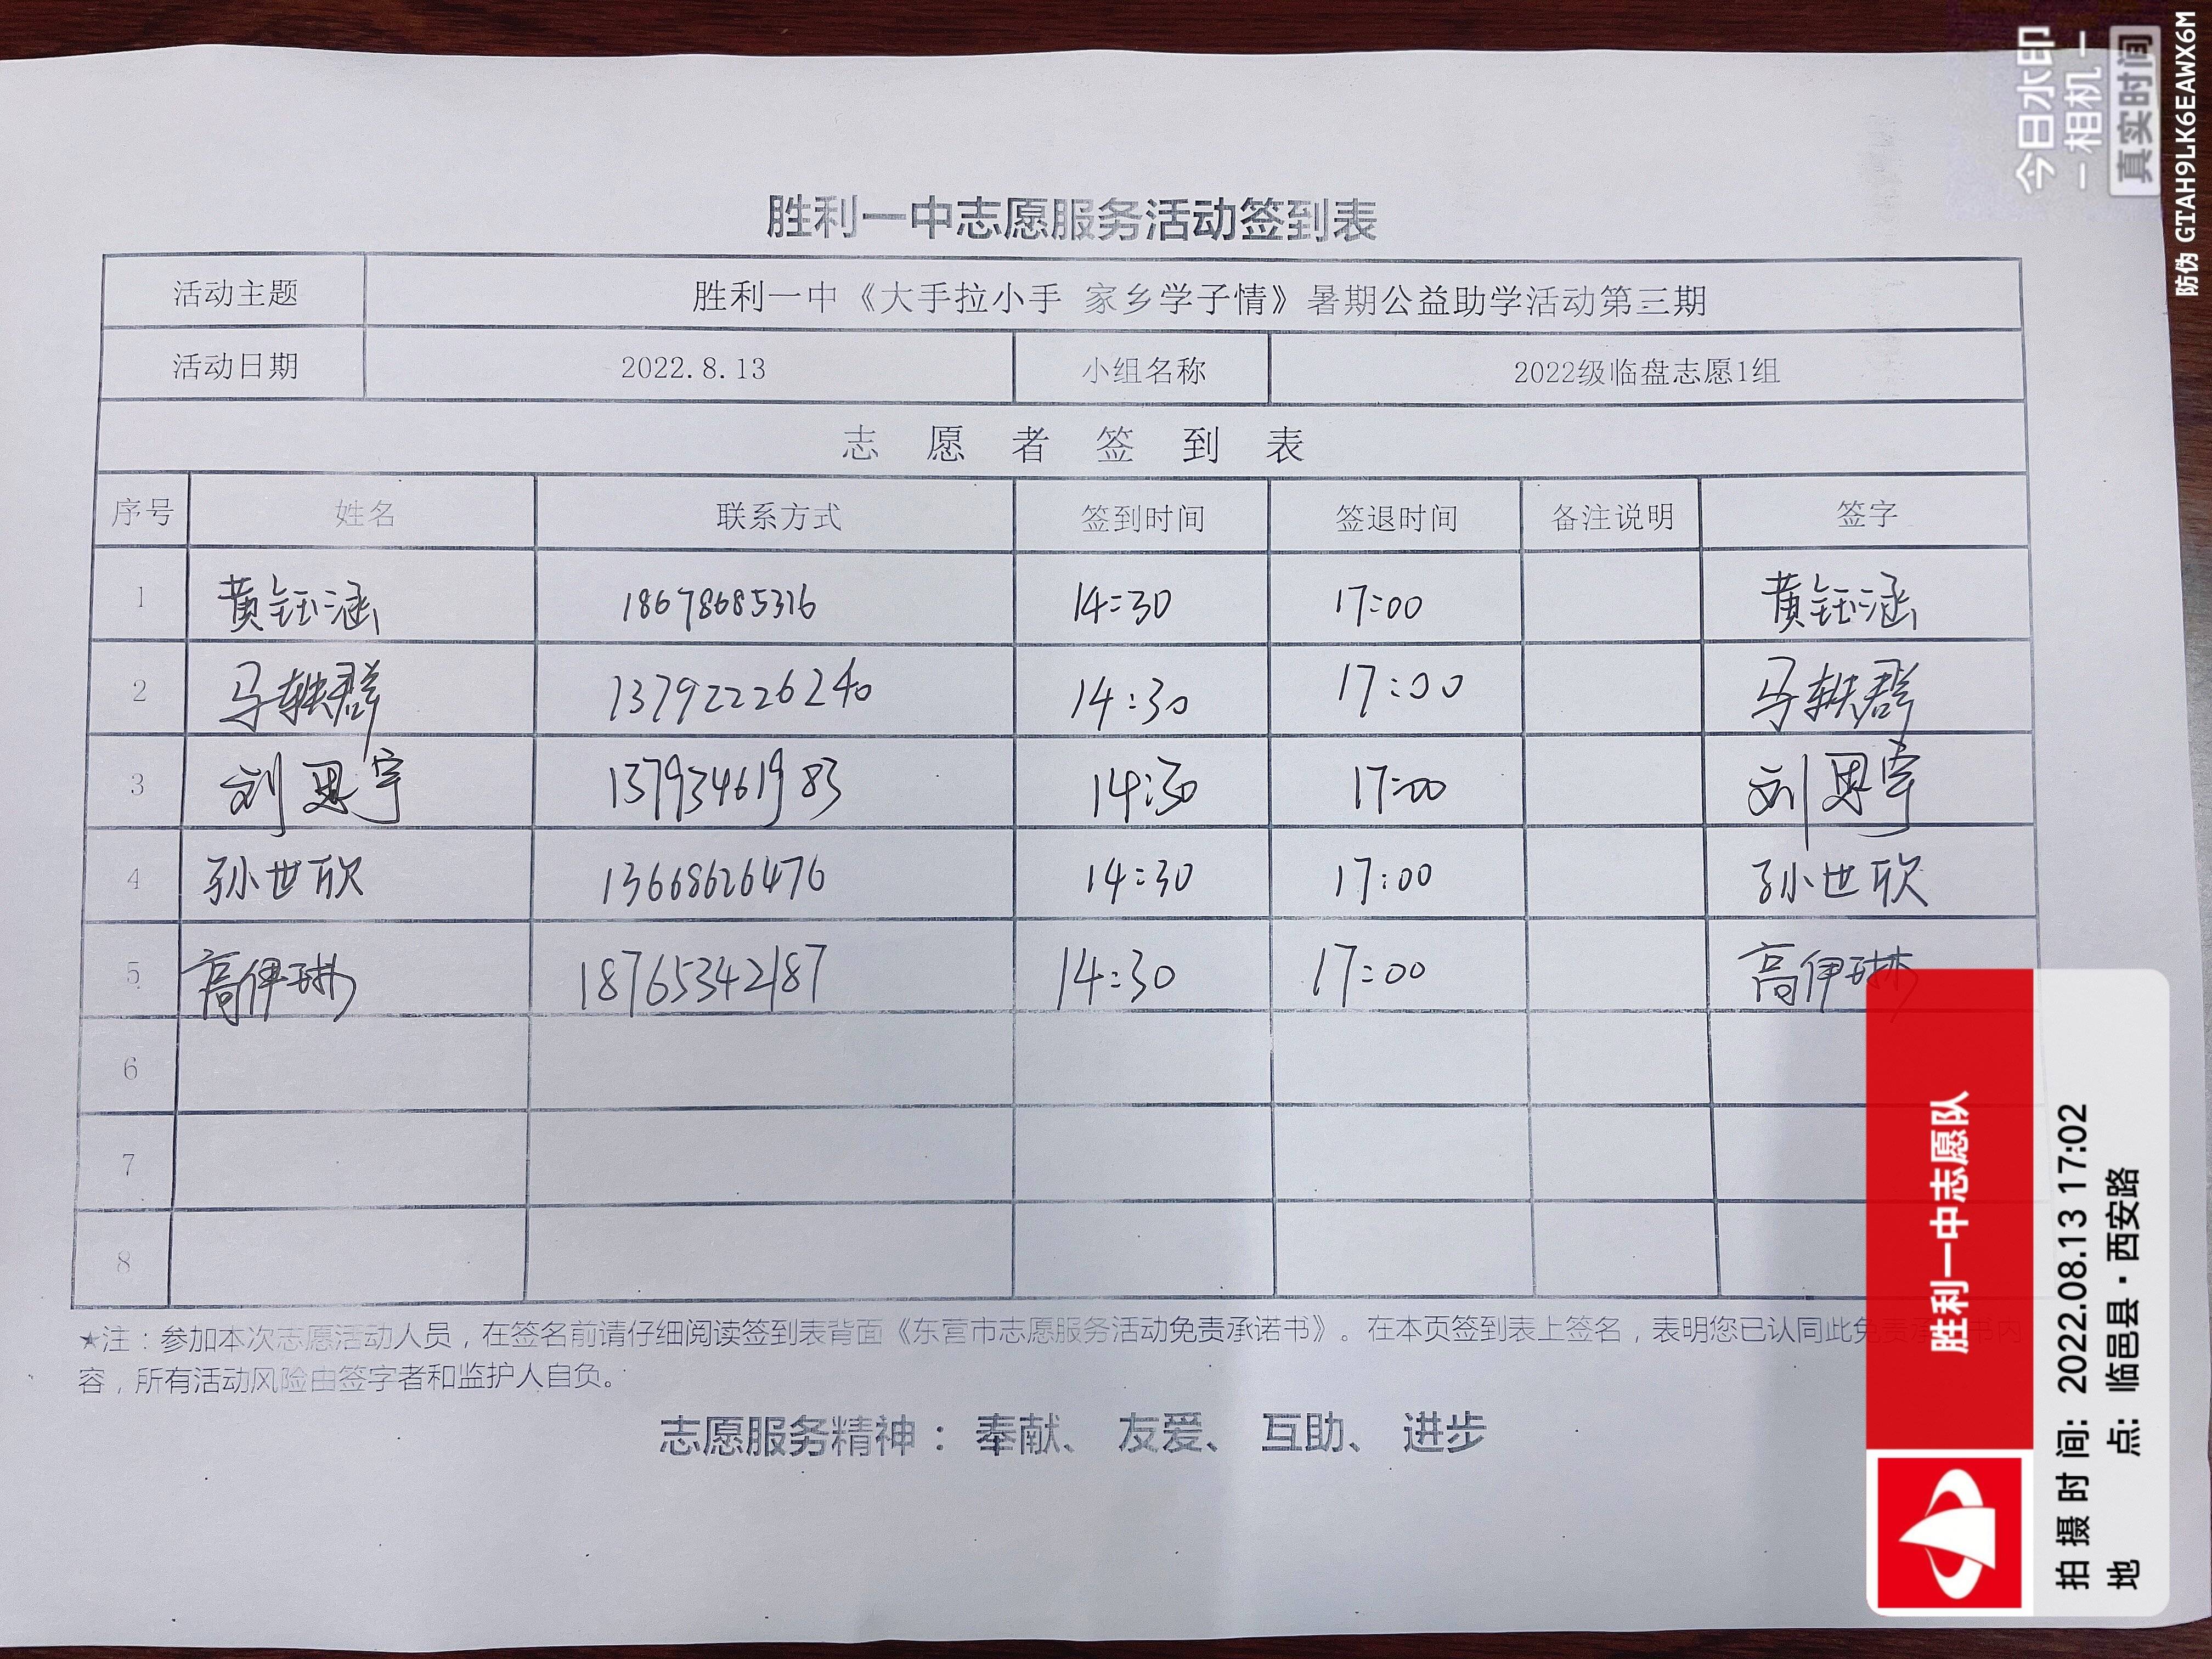 胜利一中志愿服务活动签到表
活动主题 胜利一中《大手拉小手 家乡学子情》暑期公益助学活动第三期
活动日期 2022.8.13 小组名称 2022级临盘志愿1组
志愿者签到表
序号 姓名 联系方式 签到时间 签退时间 备注说明 签字
1 黄钰涵 18678685316 14:30 17:00 黄钰涵
2 马轶群 13792226240 14:30 17:00 马轶群
3 刘思宇 13793461983 14:30 17:00 刘思宇
4 孙世欣 13668626476 14:30 17:00 孙世欣
5 高伊琳 18765342187 14:30 17:00 高伊琳
6
7
8
★注：参加本次志愿活动人员，在签名前请仔细阅读签到表背面《东营市志愿服务活动免责承诺书》。在本页签到表上签名，表明您已认同此免责承诺书内
容，所有活动风险由签字者和监护人自负。
志愿服务精神：奉献、友爱、互助、进步
胜利一中志愿队
拍摄时间：2022.08.13 17:02
地点：临邑县·西安路
今日水印
-相机-
真实时间
防伪 GTAH9LK6EAWX6M